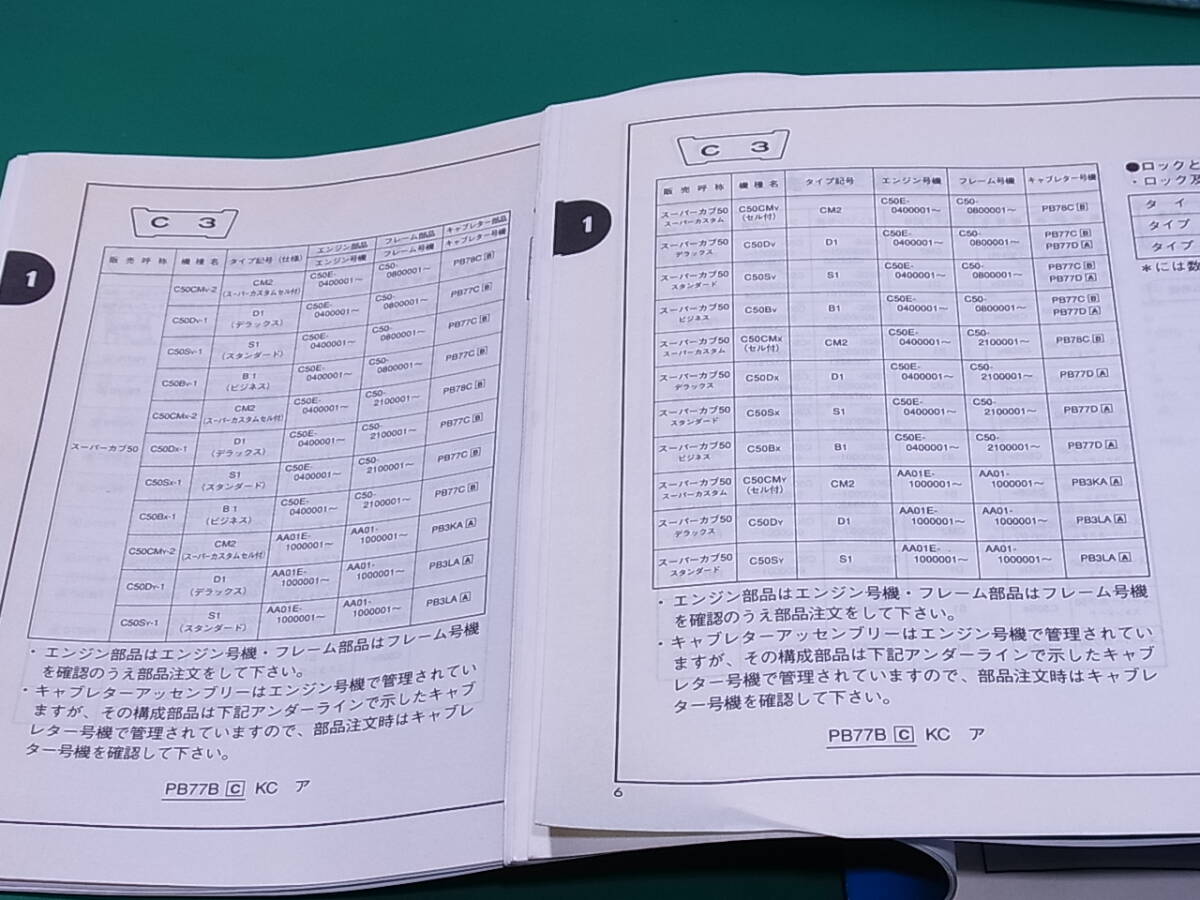 C 3
1
販売呼称 機種名 タイプ記号(仕様) エンジン部品 フレーム部品 キャブレター部品
エンジン号機 フレーム号機 キャブレター号機
スーパーカブ50
C50CMV-2 CM2 (スーパーカスタムセル付) C50E-0400001〜 C50-0800001〜 PB78C B
C50DV-1 D1 (デラックス) C50E-0400001〜 C50-0800001〜 PB77C B
C50SV-1 S1 (スタンダード) C50E-0400001〜 C50-0800001〜 PB77C B
C50BV-1 B1 (ビジネス) C50E-0400001〜 C50-0800001〜 PB77C B
C50CMX-2 CM2 (スーパーカスタムセル付) C50E-0400001〜 C50-2100001〜 PB78C B
C50DX-1 D1 (デラックス) C50E-0400001〜 C50-2100001〜 PB77C B
C50SX-1 S1 (スタンダード) C50E-0400001〜 C50-2100001〜 PB77C B
C50BX-1 B1 (ビジネス) C50E-0400001〜 C50-2100001〜 PB77C B
C50CMY-2 CM2 (スーパーカスタムセル付) AA01E-1000001〜 AA01-1000001〜 PB3KA A
C50DY-1 D1 (デラックス) AA01E-1000001〜 AA01-1000001〜 PB3LA A
C50SY-1 S1 (スタンダード) AA01E-1000001〜 AA01-1000001〜 PB3LA A
・エンジン部品はエンジン号機・フレーム部品はフレーム号機
を確認のうえ部品注文をして下さい。
・キャブレターアッセンブリーはエンジン号機で管理されてい
ますが、その構成部品は下記アンダーラインで示したキャブ
レター号機で管理されていますので、部品注文時はキャブレ
ター号機を確認して下さい。
PB77B C KC ア
C 3
1
販売呼称 機種名 タイプ記号 エンジン号機 フレーム号機 キャブレター号機
スーパーカブ50 スーパーカスタム C50CMV (セル付) CM2 C50E-0400001〜 C50-0800001〜 PB78C B
スーパーカブ50 デラックス C50DV D1 C50E-0400001〜 C50-0800001〜 PB77C B PB77D A
スーパーカブ50 スタンダード C50SV S1 C50E-0400001〜 C50-0800001〜 PB77C B PB77D A
スーパーカブ50 ビジネス C50BV B1 C50E-0400001〜 C50-0800001〜 PB77C B PB77D A
スーパーカブ50 スーパーカスタム C50CMX (セル付) CM2 C50E-0400001〜 C50-2100001〜 PB78C B
スーパーカブ50 デラックス C50DX D1 C50E-0400001〜 C50-2100001〜 PB77D A
スーパーカブ50 スタンダード C50SX S1 C50E-0400001〜 C50-2100001〜 PB77D A
スーパーカブ50 ビジネス C50BX B1 C50E-0400001〜 C50-2100001〜 PB77D A
スーパーカブ50 スーパーカスタム C50CMY (セル付) CM2 AA01E-1000001〜 AA01-1000001〜 PB3KA A
スーパーカブ50 デラックス C50DY D1 AA01E-1000001〜 AA01-1000001〜 PB3LA A
スーパーカブ50 スタンダード C50SY S1 AA01E-1000001〜 AA01-1000001〜 PB3LA A
・エンジン部品はエンジン号機・フレーム部品はフレーム号機
を確認のうえ部品注文をして下さい。
・キャブレターアッセンブリーはエンジン号機で管理されてい
ますが、その構成部品は下記アンダーラインで示したキャブ
レター号機で管理されていますので、部品注文時はキャブレ
ター号機を確認して下さい。
PB77B C KC ア
6
●ロックと
・ロック及
タイ
タイプ
タイプ
*には数